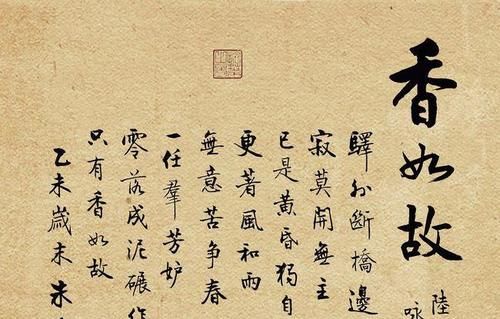 香如故
陸
咏
驛外斷橋邊
寂莫開無主
已是黃昏獨自
更著風和雨
無意苦争春
一任羣芳妒
零落成泥碾作
只有香如故
乙未歲末朱